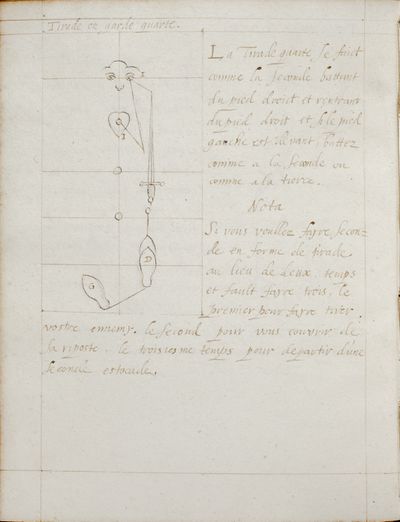 Tirade et garde quarte.
La Tirade quarte se faict
comme la seconde battant
du pied droict et rentrant
du pied droit et si le pied
gauche est devant, battez
comme a la seconde ou
comme a la tierce.
Nota
Si vous voullez fayre secon-
de en forme de tirade
au lieu de deux temps
et fault fayre trois. le
premier pour fayre tirer
vostre ennemy. le second pour vous couvrir de
sa riposte. le troisiesme temps pour departir d'une
seconde estocade.
T
D
G